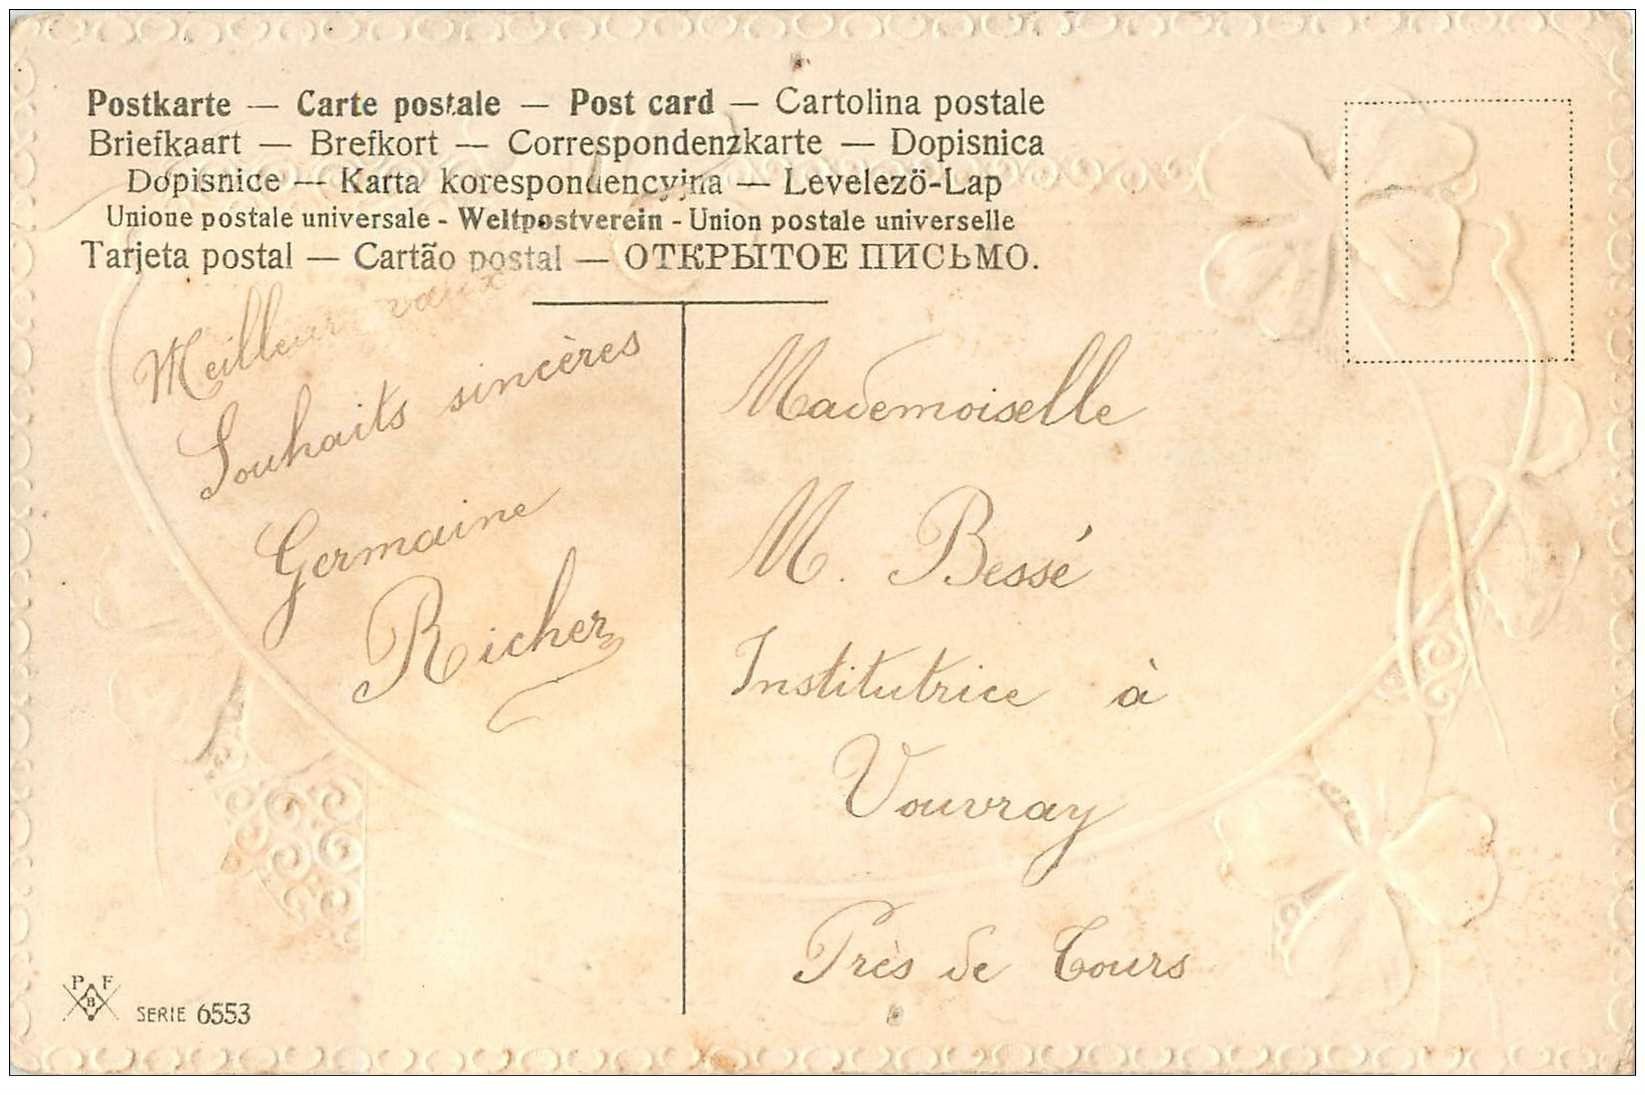 Postkarte — Carte postale — Post card — Cartolina postale
Briefkaart — Brefkort — Correspondenzkarte — Dopisnica
Dopisnice — Karta korespondencyjna — Levelezö-Lap
Unione postale universale - Weltpostverein - Union postale universelle
Tarjeta postal — Cartão postal — ОТКРЫТОЕ ПИСЬМО.
Meilleurs vœux
Souhaits sincères
Germaine
Richer
Mademoiselle
M. Bessé
Institutrice à
Vouvray
Près de Tours
P F
B
SERIE 6553